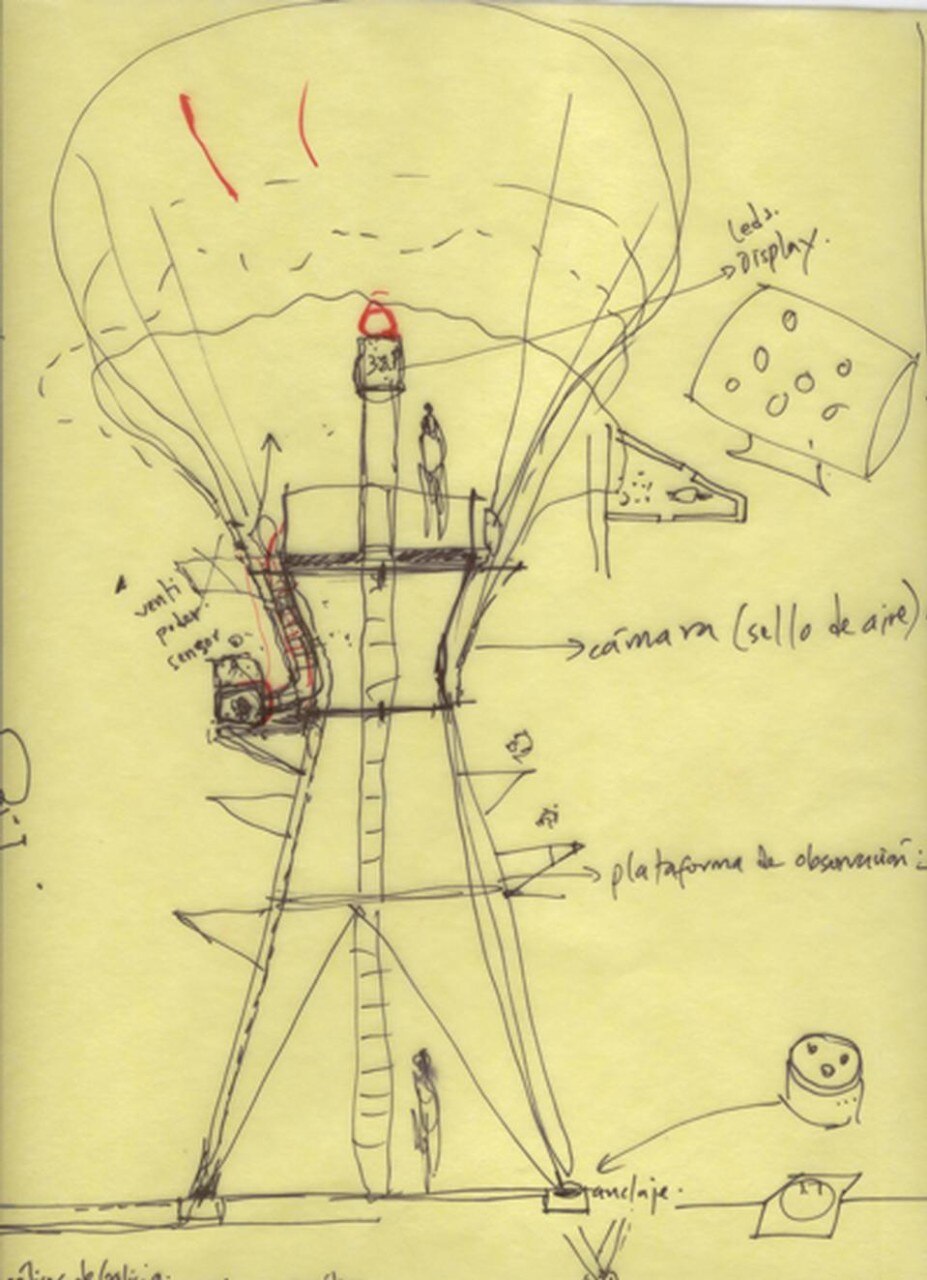 leds.
Display.
venti
poder.
sensor
cámara (sello de aire)
plataforma de observación:
anclaje.